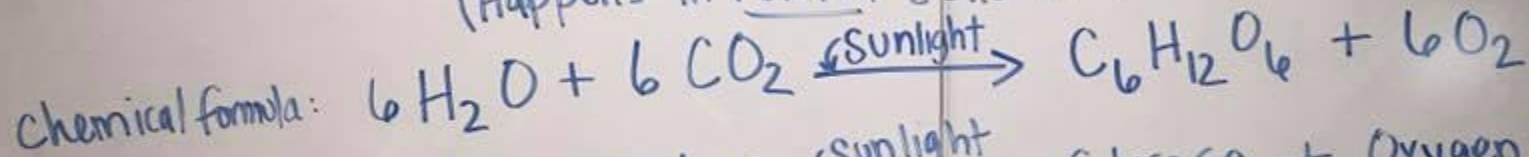 (Happens in
Chemical formula: 6 H₂O + 6 CO₂ sunlight → C₆H₁₂O₆ + 6O₂
sunlight + Oxygen